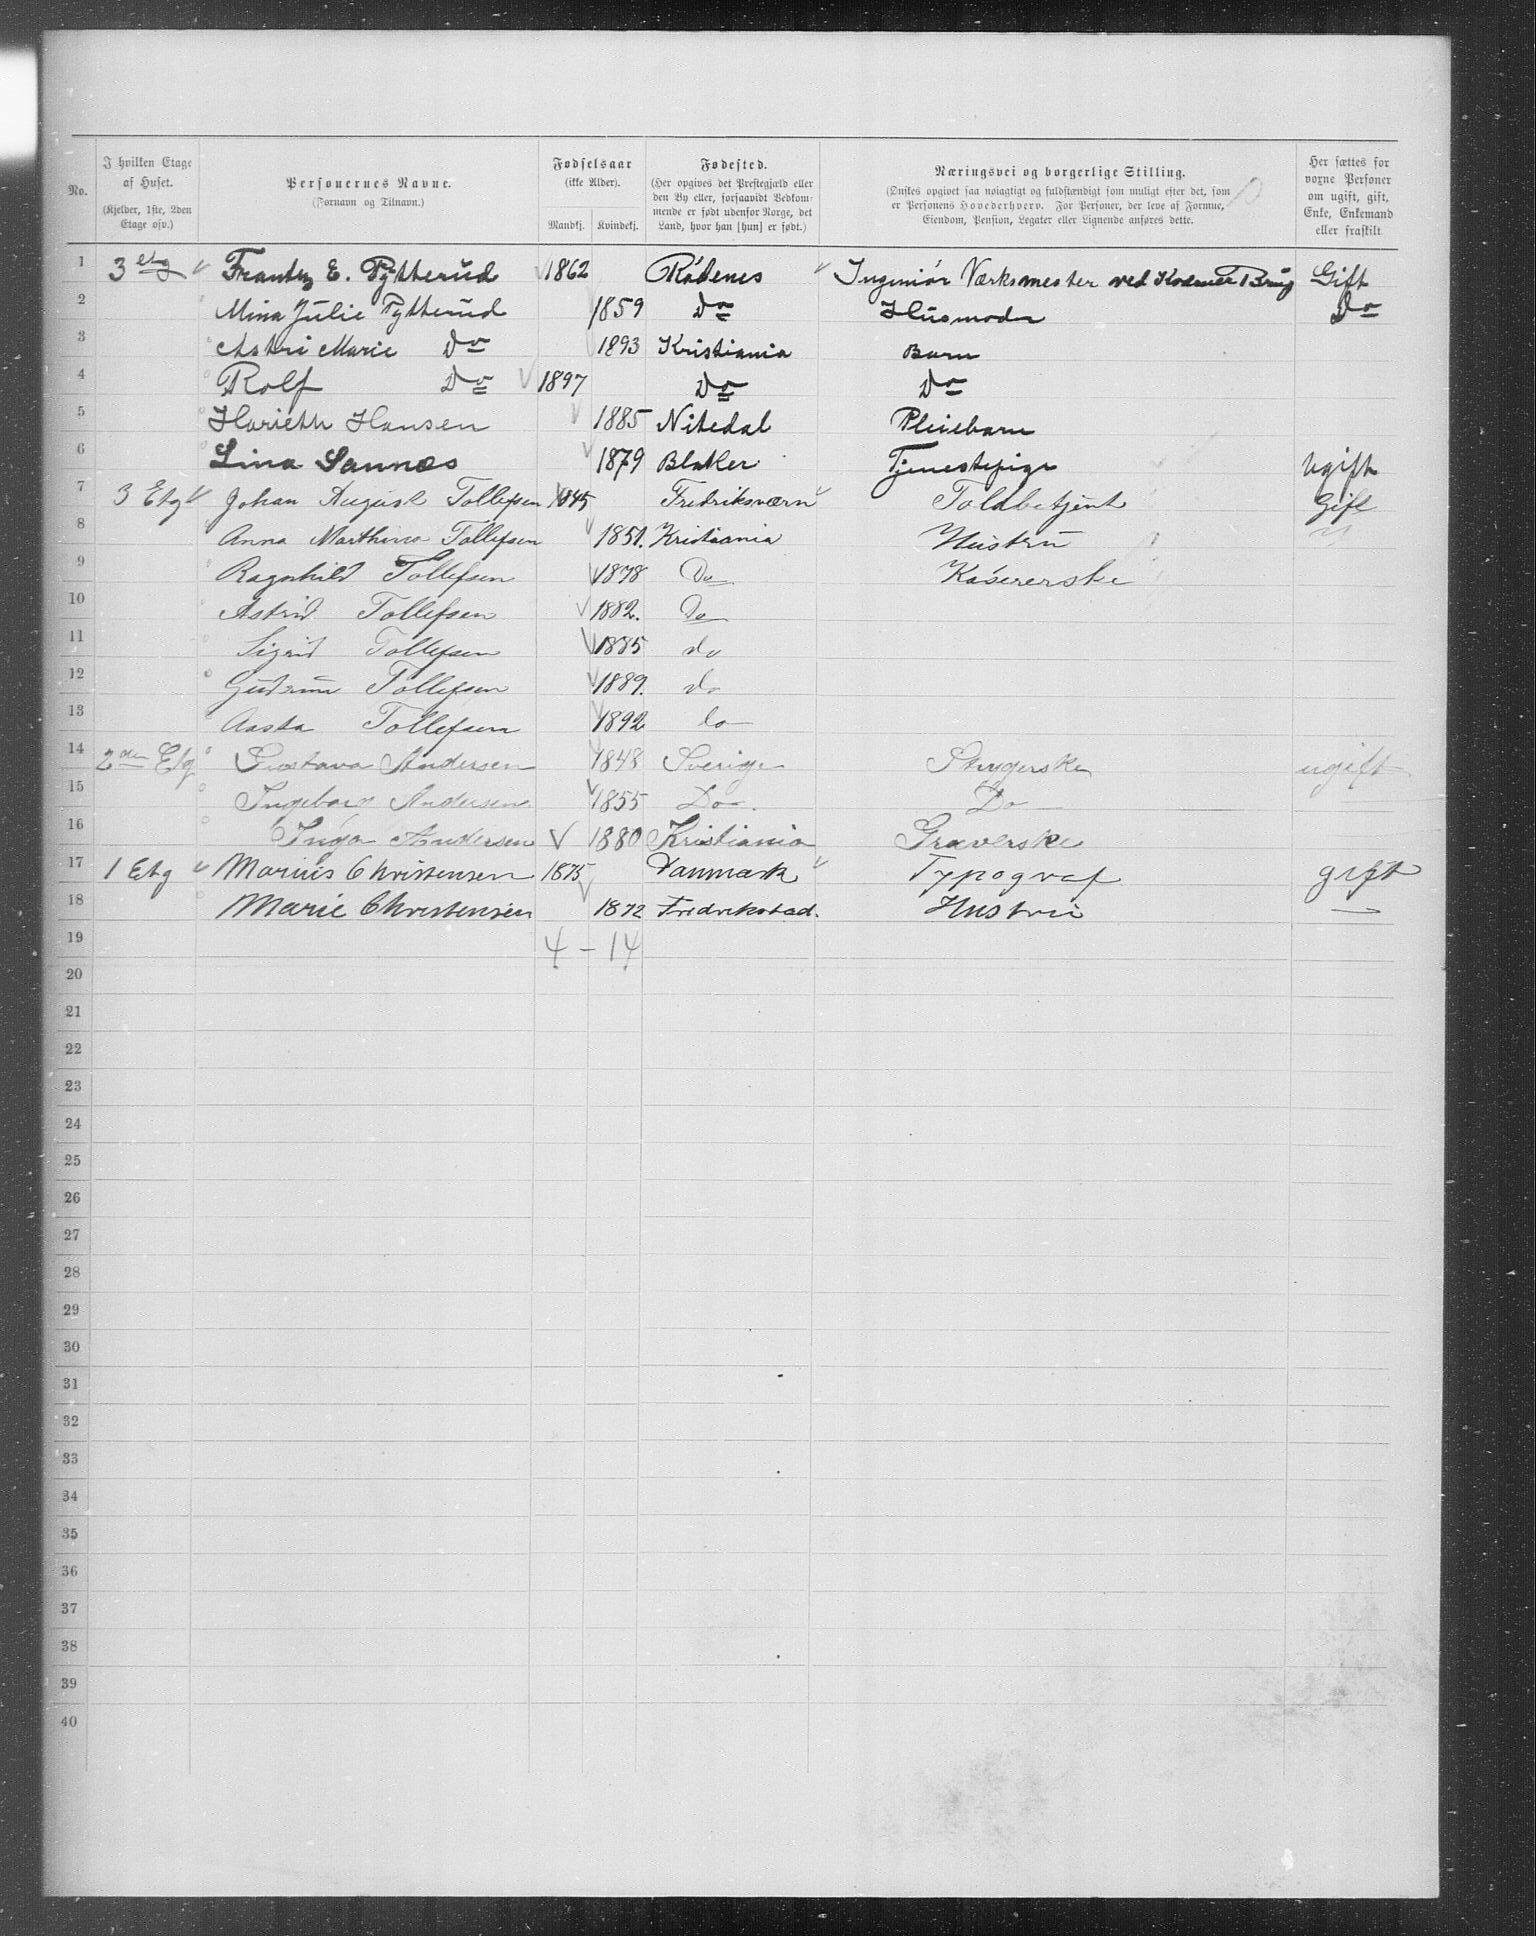 No. | I hvilken Etage af Huset. (Kjelder, 1ste, 2den Etage osv.) | Personernes Navne. (Fornavn og Tilnavn.) | Fødselsaar (ikke Alder). Mandkj. Kvindekj. | Fødested. (Her opgives det Prestegjæld eller den By eller, forsaavidt Vedkommende er født udenfor Norge, det Land, hvor han [hun] er født.) | Næringsvei og borgerlige Stilling. (Ønskes opgivet saa nøiagtigt og fuldstændigt som muligt efter det, som er Personens Hovederhverv. For Personer, der leve af Formue, Eiendom, Pension, Legater eller Lignende anføres dette. | Her sættes for voxne Personer om ugift, gift, Enke, Enkemand eller fraskilt
1 3 etg Frantz E. Pytterud 1862 Rödenes Ingeniör Værksmester ved Brug Gift
2 Mina Julie Pytterud 1859 Do Husmoder Do
3 Astri Marie Do 1893 Kristiania Barn
4 Rolf Do 1897 Do Do
5 Harieth Hansen 1885 Nitedal Pleiebarn
6 Lina Sannæs 1879 Blaker Tjenestepige Ugift
7 3 Etg Johan August Tollefsen 1845 Fredriksværn Toldbetjent Gift
8 Anna Marthine Tollefsen 1851. Kristiania Hustru "
9 Ragnhild Tollefsen 1878 Do Kasererske
10 Astrid Tollefsen 1882. Do
11 Sigrid Tollefsen 1885 do
12 Gudrun Tollefsen 1889. do
13 Aasta Tollefsen 1892 do
14 2den Etg Gustava Andersen 1848 Sverige Strygerske ugift
15 Ingeborg Andersen 1855 Do Do
16 Inga Andersen 1880 Kristiania Graverske
17 1 Etg Marius Christensen 1875 Danmark Typograf gift
18 Marie Christensen 1872 Fredrikstad. Hustru —
19 4 - 14
20
21
22
23
24
25
26
27
28
29
30
31
32
33
34
35
36
37
38
39
40